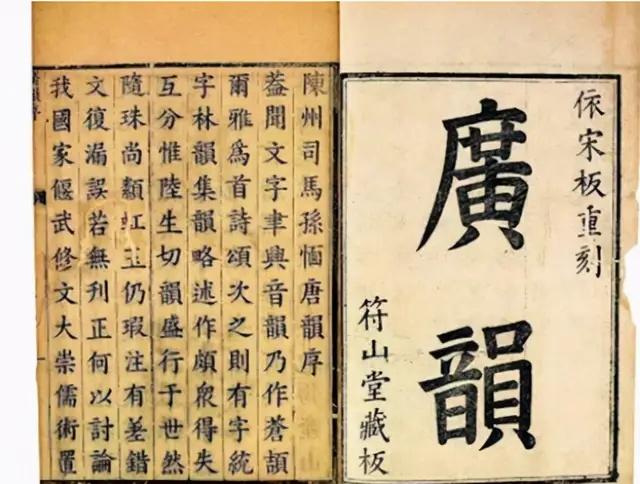 依宋板重刻
廣韻
符山堂藏板
陳州司馬孫愐唐韻序
蓋聞文字聿興音韻乃作蒼頡
爾雅為首詩頌次之則有字統
字林韻集韻略述作頗衆得失
互分惟陸生切韻盛行于世然
隨珠尚纇虹玉仍瑕注有差錯
文復漏誤若無刊正何以討論
我國家偃武修文大崇儒術置